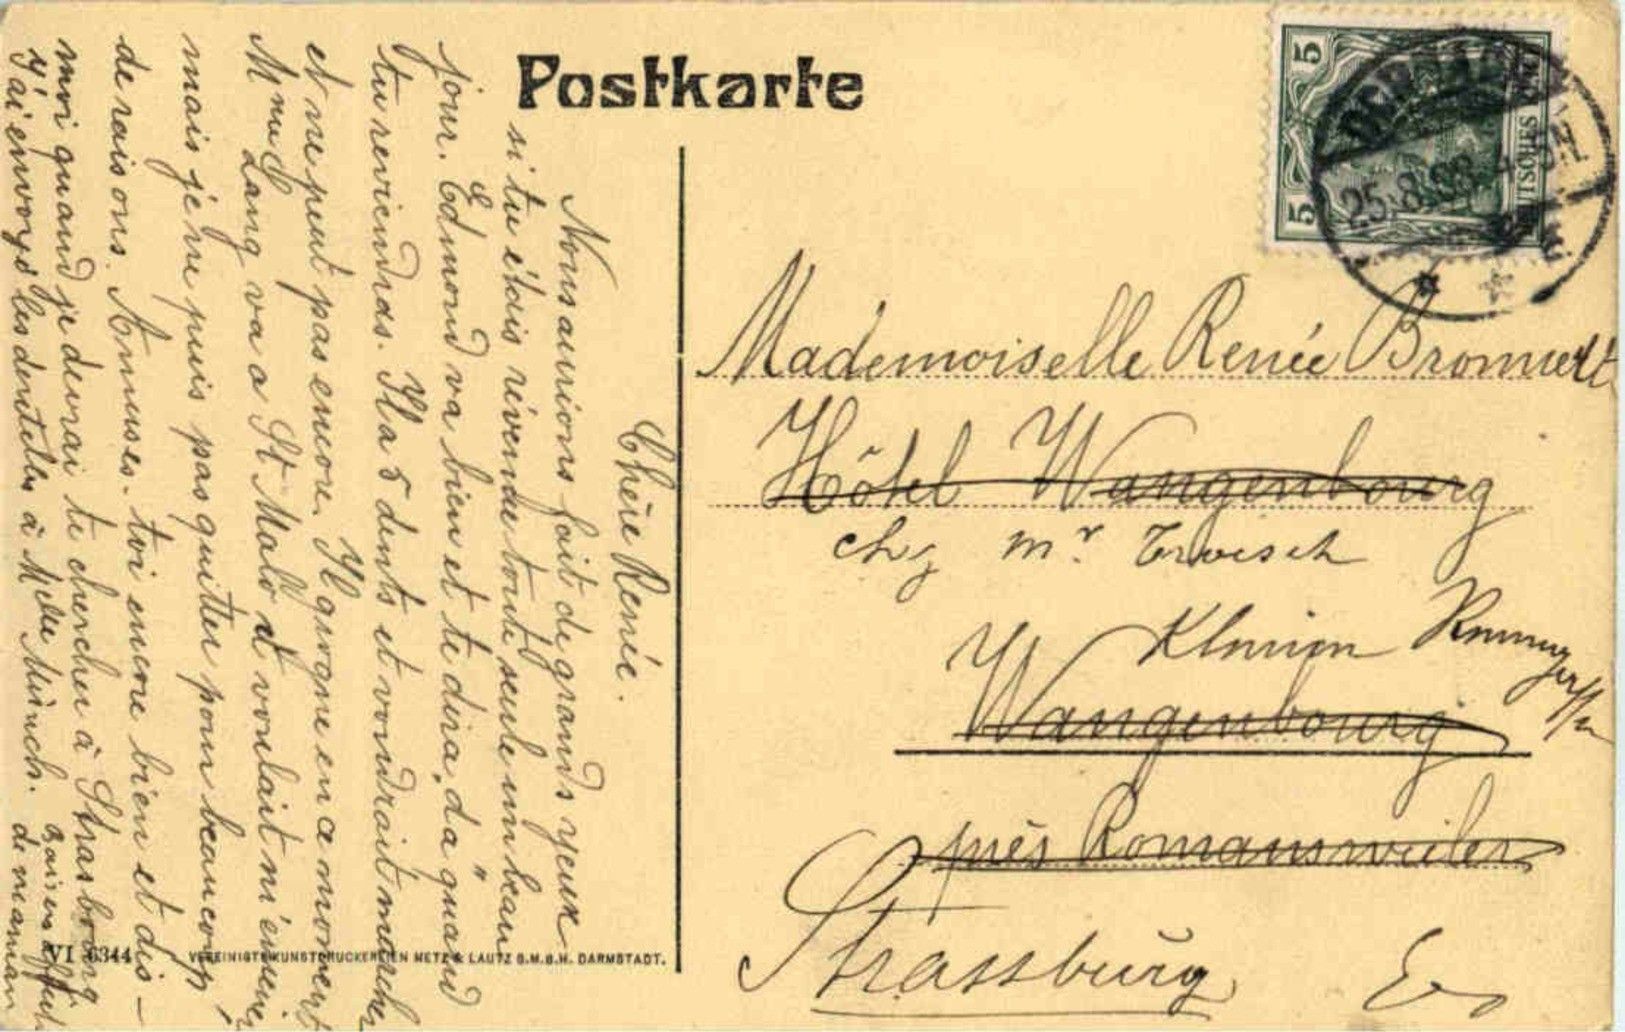 Postkarte
Chère Renée.
Nous aurions fait de grands yeux
si tu étais révenue toute seule un beau
jour. Edmond va bien et te dira "da" quand
tu reviendras. Il a 5 dents et voudrait mâcher
et ne peut pas encore. Il grogne en ce moment
Mme Lang va a St Malo et voulait m'emener
mais je ne puis pas quitter pour beaucoup
de raisons. Amuses-toi encore bien et dis-
moi quand je devrai te chercher à Strasbourg
J'ai envoyé les dentelles à Melle Münch. Baisers affect
de maman
VI 6344
VEREINIGTE KUNSTDRUCKEREIEN METZ & LAUTZ G.M.B.H. DARMSTADT.
5
5
25.8.
Mademoiselle Renée Bromert
Hôtel Wangenbourg
chz Mr
Wangenbourg
près Romansweiler
Strassburg